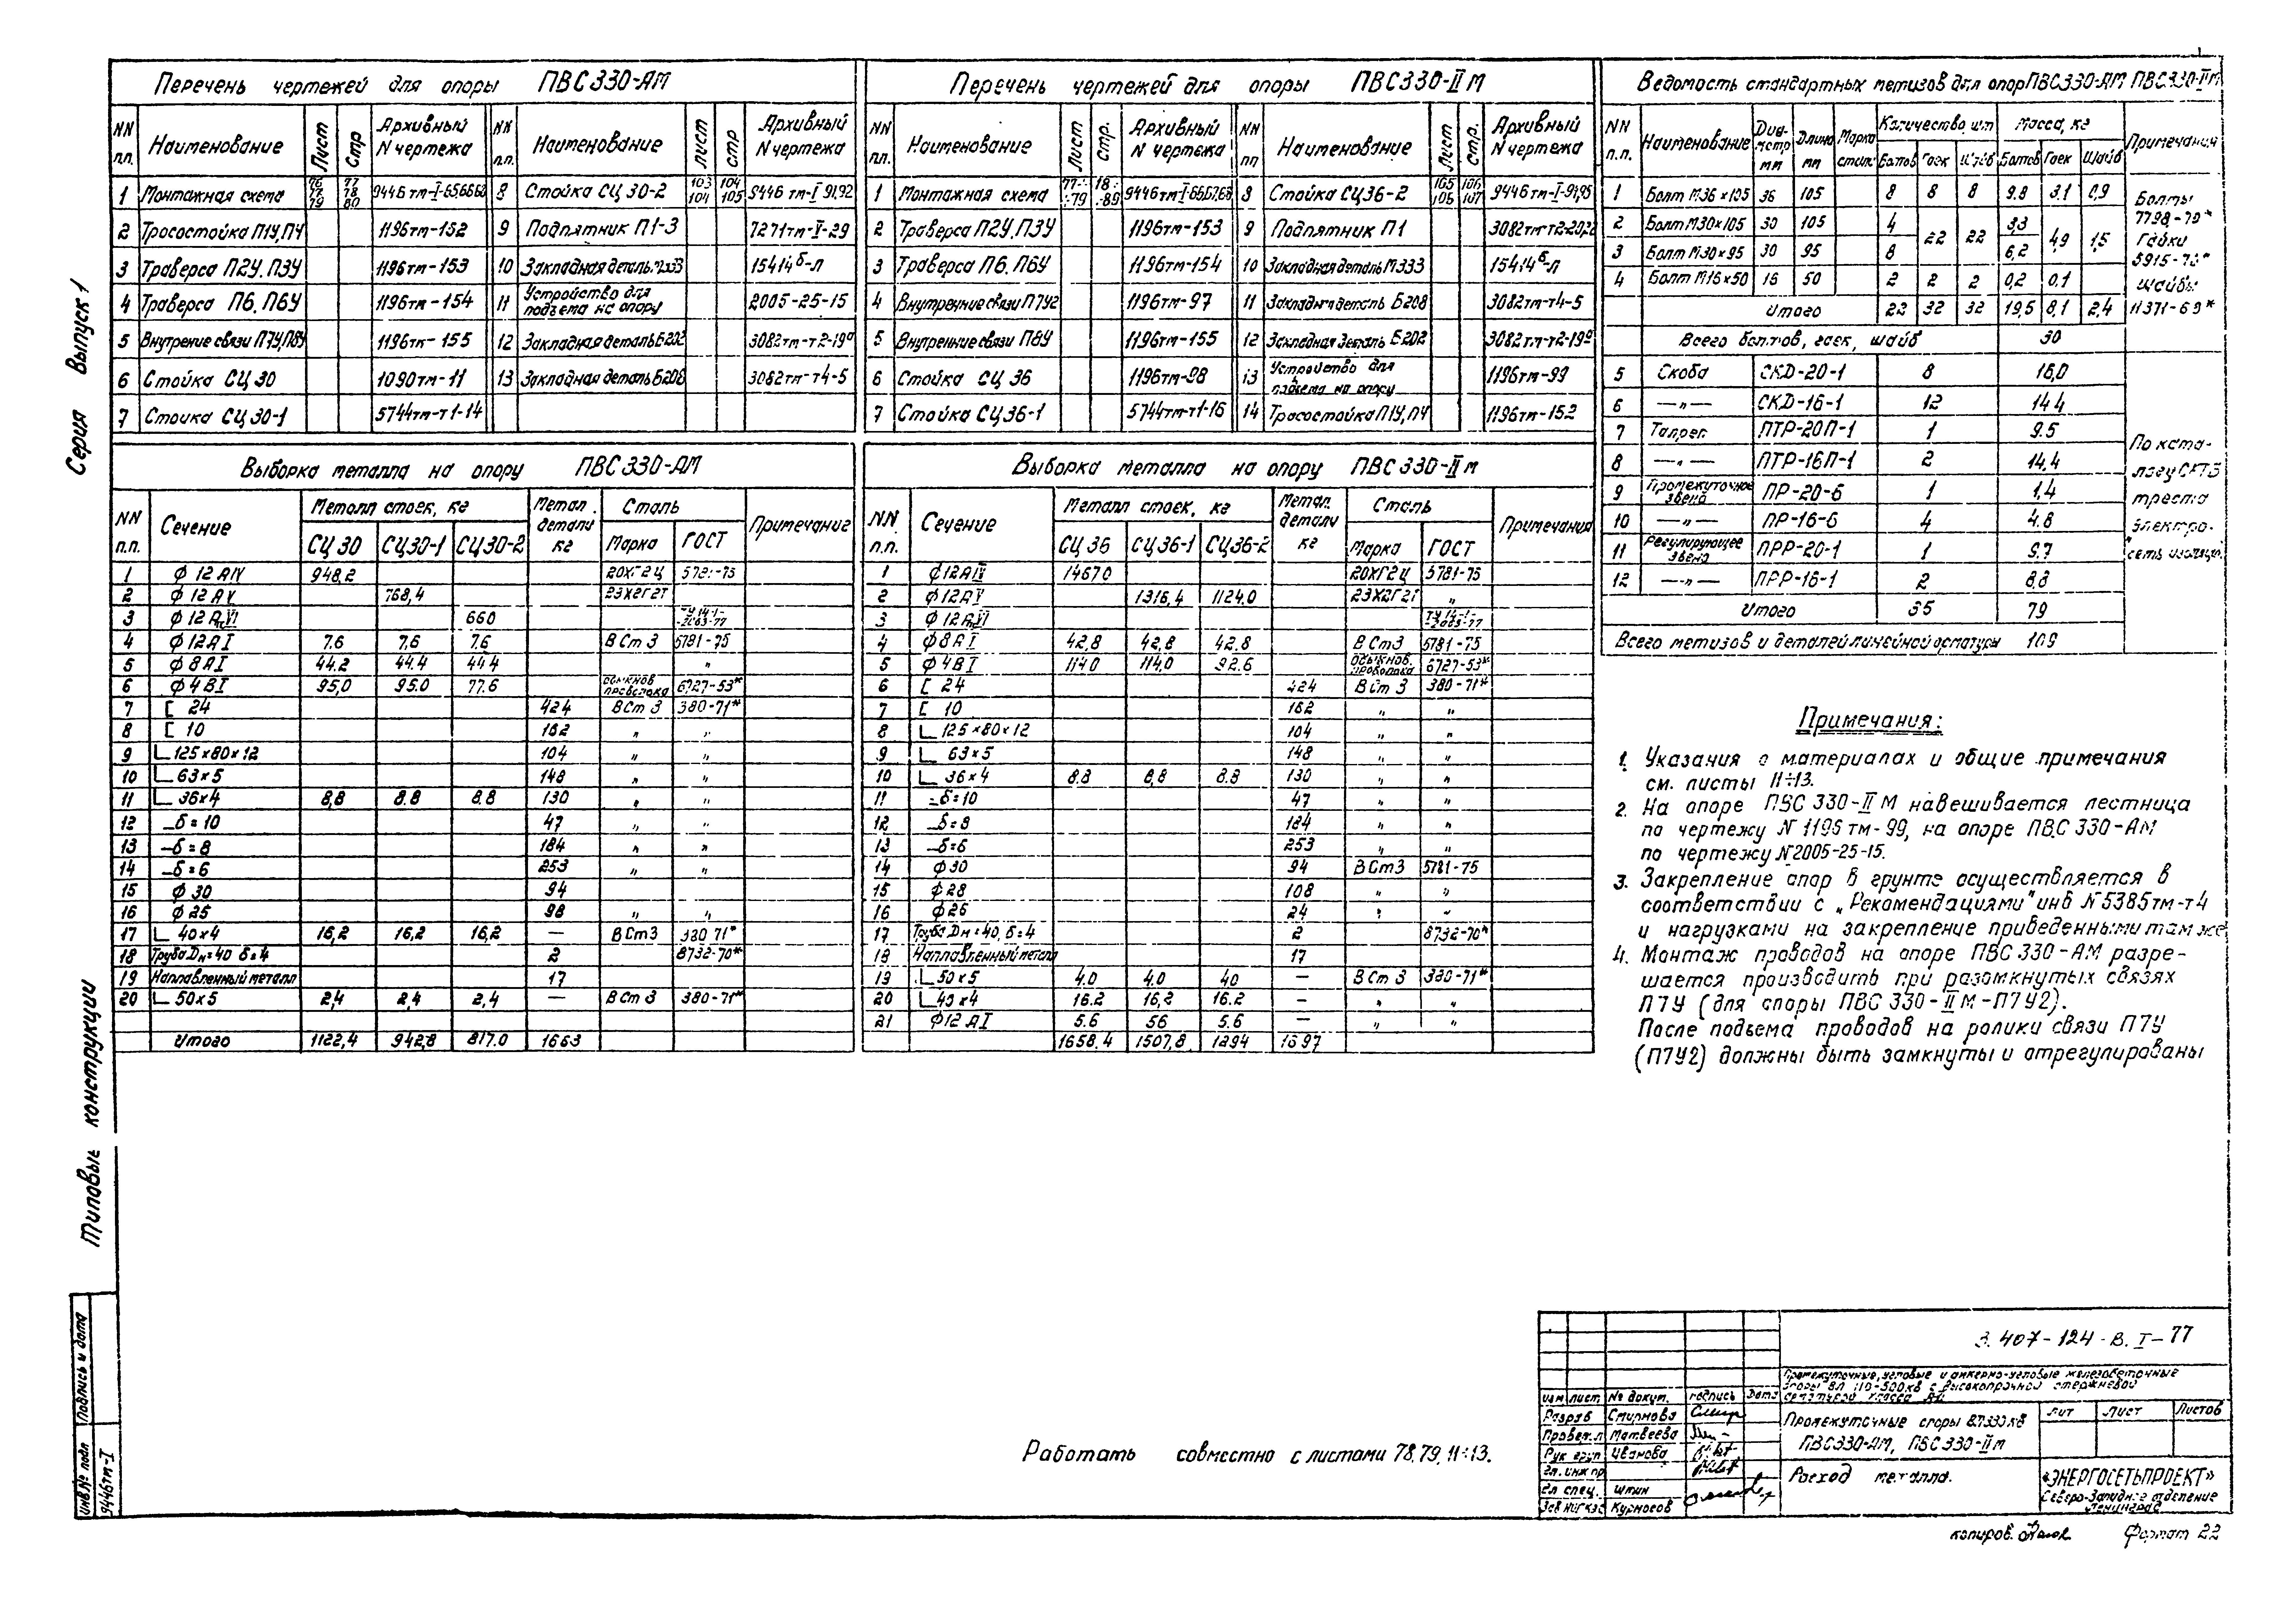 Перечень чертежей для опоры ПВС330-АМ
NN п.п. Наименование Лист Стр Архивный N чертежа NN п.п. Наименование Лист стр Архивный N чертежа
1 Монтажная схема 79 77 78 80 8 Стойка СЦ 30-2 103 104 104 105 9446 тм-I 91,92
2 Тросостойка П1У,П4 1196тм-152 9 Подпятник П1-3 7271тм-II-29
3 Траверса П2У.П3У 1196тм-153 10 Закладная деталь М333 15414б-л
4 Траверса П6.П6У 1196тм-154 11 Устройство для подъема на опору 2005-25-15
5 Внутрение связи П7У,П8У 1196тм-155 12 Закладная деталь Б202 3082тм-т2-19а
6 Стойка СЦ 30 1090тм-11 13 Закладная деталь Б208 3082тм-т4-5
7 Стойка СЦ 30-1 5744тм-т1-14
Перечень чертежей для опоры ПВС330-II М
NN п.п. Наименование Лист Стр. Архивный N чертежа NN пп Наименование Лист стр. Архивный N чертежа
1 Монтажная схема 8 Стойка СЦ36-2 105 106 106 107
2 Траверса П2У.П3У 1196тм-153 9 Подпятник П1
3 Траверса П6.П6У 1196тм-154 10 Закладная деталь М333 15414б-л
4 Внутренние связи П7У2 1196тм-97 11 Закладная деталь Б208 3082тм-т4-5
5 Внутренние связи П8У 1196тм-155 12 Закладная деталь Б202 3082тм-т2-19а
6 Стойка СЦ 36 1196тм-98 13 Устройство для подъема на опору 1196тм-99
7 Стойка СЦ36-1 5744тм-т1-16 14 Тросостойка П1У,П4 1196тм-152
Ведомость стандартных метизов для опор ПВС330-АМ ПВС330-IIМ
NN п.п. Наименование Диаметр мм Длина мм Марка стали Количество, шт Масса, кг Примечания
Болтов Гаек Шайб Болтов Гаек Шайб
1 Болт М36х105 36 105 8 8 8 9.8 3.1 0,9
2 Болт М30х105 30 105 4 22 22 3,3 4,9 1,5
3 Болт М30х95 30 95 8 6,2
4 Болт М16х50 16 50 2 2 2 0,2 0,1
Итого 22 32 32 19,5 8,1 2,4
Болты 7798-70* Гайки 5915-70* шайбы 11371-68*
Всего болтов, гаек, шайб 30
5 Скоба СКД-20-1 8 16,0
6 —„— СКД-16-1 12 14.4
7 Талреп ПТР-20П-1 1 9.5
8 —„— ПТР-16П-1 2 14,4
9 Промежуточное звено ПР-20-6 1 1,4
10 —„— ПР-16-6 4 4.8
11 Регулирующее звено ПРР-20-1 1 9.7
12 —„— ПРР-16-1 2 8,8
По каталогу СКТБ треста электросеть изоляц.
Итого 35 79
Всего метизов и деталей линейной арматуры 109
Выборка металла на опору ПВС330-АМ
NN п.п. Сечение Металл стоек, кг Метал. детали кг Сталь Примечание
СЦ 30 СЦ30-1 СЦ30-2 Марка ГОСТ
1 ф 12 АIV 948,2 20ХГ2Ц 5781-75
2 ф 12 АV 768,4 23Х2Г2Т
3 ф 12 АтVI 660
4 ф 12 АI 7.6 7,6 7.6 В Ст 3 5781-75
5 ф 8 АI 44.2 44.4 44.4 „
6 ф 4 ВI 95,0 95.0 77.6 обыкнов проволока 6727-53*
7 [ 24 424 ВСт 3 380-71*
8 [ 10 162 „ „
9 ∟125х80х12 104 „ „
10 ∟63х5 148 „ „
11 ∟36х4 8,8 8.8 8.8 130 „ „
12 –δ=10 47 „ „
13 –δ=8 184 „ „
14 –δ=6 253 „ „
15 ф 30 94
16 ф 25 98 „ „
17 ∟ 40х4 16,2 16,2 16,2 — ВСт3 380 71*
18 Труба Дн=40 δ=4 2 8732-70*
19 Наплавленный металл 17
20 ∟ 50х5 2,4 2,4 2,4 — ВСт 3 380-71*
Итого 1122,4 942,8 817.0 1663
Выборка металла на опору ПВС330-II м
NN п.п. Сечение Металл стоек, кг Метал. детали кг Сталь Примечания
СЦ 36 СЦ36-1 СЦ36-2 Марка ГОСТ
1 ф12АIV 1467.0 20ХГ2Ц 5781-75
2 ф12АV 1316.4 1124.0 23Х2Г2Т „
3 ф12АтVI
4 ф8АI 42,8 42,8 42.8 ВСт3 5781-75
5 ф4ВI 114.0 114.0 92.6 обыкнов. проволока 6727-53*
6 [ 24 424 ВСт 3 380-71*
7 [ 10 162 „ „
8 ∟125х80х12 104 „ „
9 ∟ 63х5 148 „ „
10 ∟ 36х4 8.8 8,8 8.8 130 „ „
11 –δ=10 47 „ „
12 –δ=8 184 „ „
13 –δ=6 253 „ „
14 ф30 94 ВСт3 5781-75
15 ф28 108 „ „
16 ф26 24 „ „
17 Труба Дн=40, δ=4 2 8732-70*
18 Наплавленный металл 17
19 ∟50х5 4.0 4.0 40 — ВСт3 380-71*
20 ∟40х4 16.2 16,2 16.2 — „ „
21 ф12 АI 5.6 56 5.6 — „ „
1658.4 1507,8 1294 1697
Примечания:
1. Указания о материалах и общие примечания
см. листы 11÷13.
2. На опоре ПВС 330-II М навешивается лестница
по чертежу N 1196 тм-99, на опоре ПВС 330-АМ
по чертежу N2005-25-15.
3. Закрепление опор в грунте осуществляется в
соответствии с „Рекомендациями" инв N 5385тм-т4
и нагрузками на закрепление приведенными там же
4. Монтаж проводов на опоре ПВС 330-АМ разре-
шается производить при разомкнутых связях
П7У (для опоры ПВС 330-II М-П7У2).
После подъема проводов на ролики связи П7У
(П7У2) должны быть замкнуты и отрегулированы
Работать совместно с листами 78,79, 11÷13.
3.407-124-В.I-77
Промежуточные, угловые и анкерно-угловые железобетонные
опоры ВЛ 110-500кВ с высокопрочной стержневой
арматурой класса
Изм лист № докум. подпись Дата
Разраб Смирнова
Провер.л Матвеева
Рук груп Иванова
Гл. инж пр
Гл спец. Штин
Курносов
Промежуточные опоры ВЛ330кВ
ПВС330-АМ, ПВС330-IIм
Лит Лист Листов
Расход металла.
«ЭНЕРГОСЕТЬПРОЕКТ»
Северо-Западное отделение
Ленинград
копиров. Формат 22
Серия Выпуск 1
Типовые конструкции
Подпись и дата
инв № подл 9446тм-I